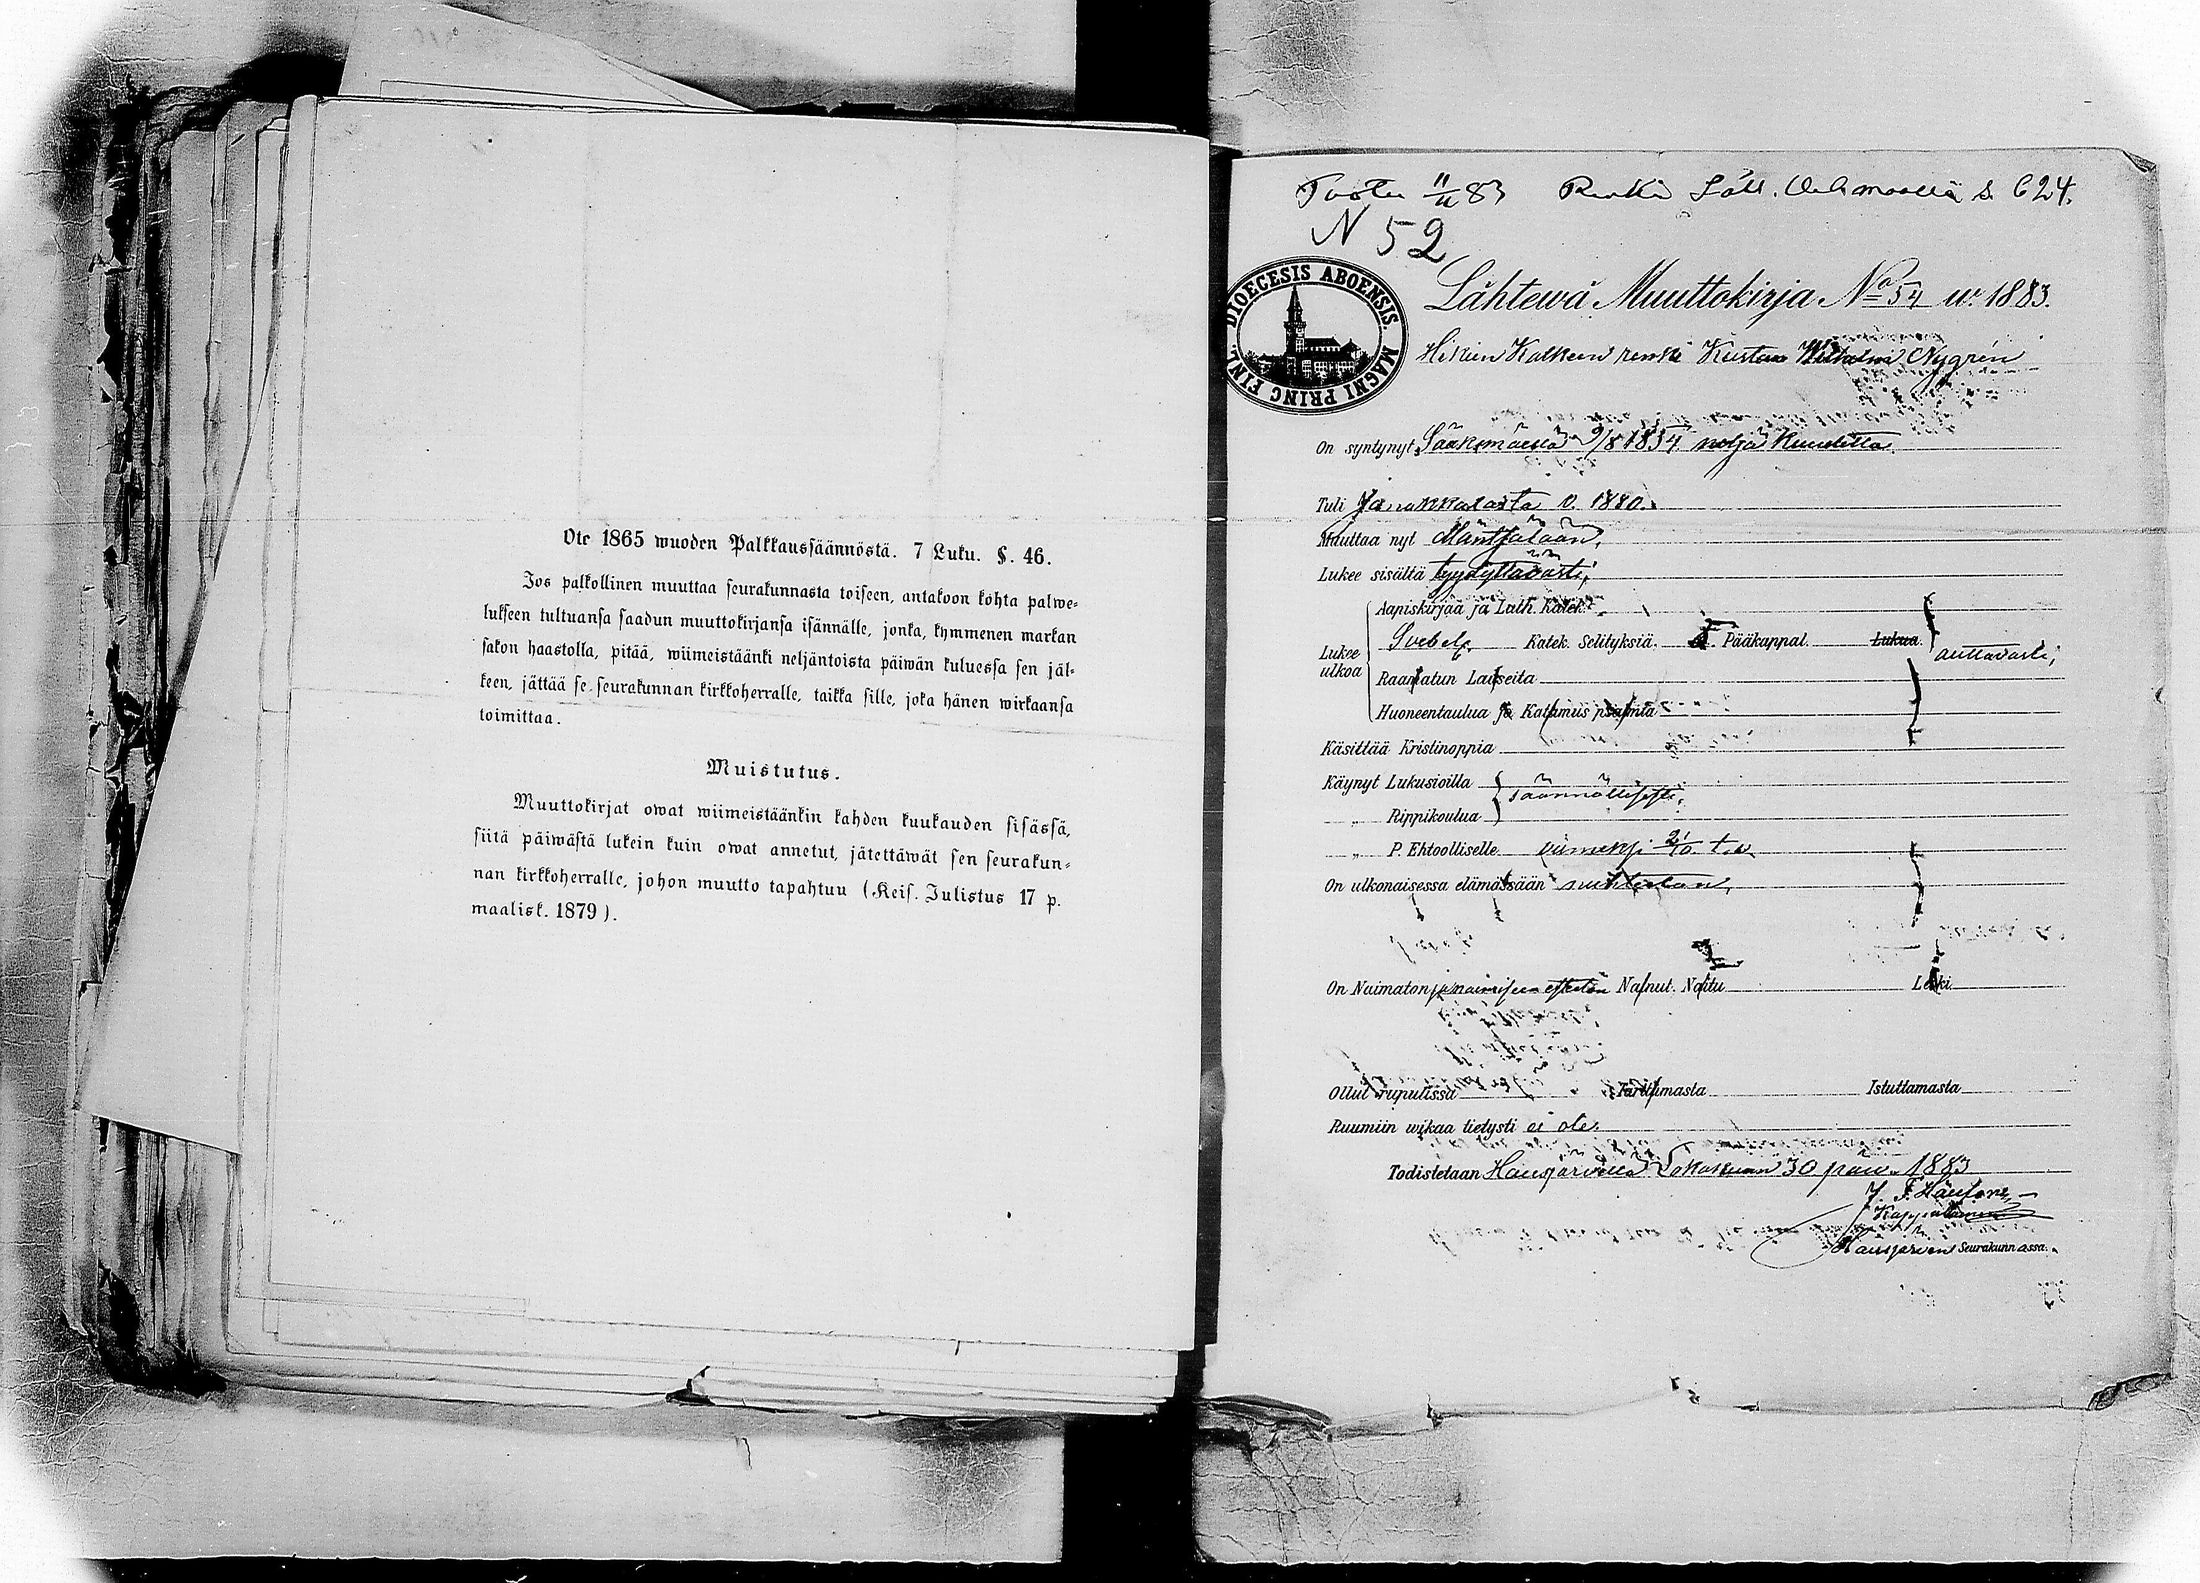 Ote 1865 wuoden Palkkaussäännöstä. 7 Luku. §. 46.
Jos palkollinen muuttaa seurakunnasta toiseen, antakoon kohta palwe-
lukseen tultuansa saadun muuttokirjansa isännälle, jonka, kymmenen markan
sakon haastolla, pitää, wiimeistäänki neljäntoista päiwän kuluessa sen jäl-
keen, jättää se seurakunnan kirkkoherralle, taikka sille, joka hänen wirkaansa
toimittaa.
Muistutus.
Muuttokirjat owat wiimeistäänkin kahden kuukauden sisässä,
siitä päiwästä lukein kuin owat annetut, jätettäwät sen seurakun-
nan kirkkoherralle, johon muutto tapahtuu (Keis. Julistus 17 p.
maalisk. 1879).
11/11 83 Renki s. 624.
N 52
DIOECESIS ABOENSIS. MAGNI PRINC FINL.
Lähtewä Muuttokirja No 54 w. 1883.
renki Kustaa Wilhelm Nygrén
On syntynyt Sääksmäellä 9/8 1854 neljä
Tuli Janakkalasta v. 1880.
Muuttaa nyt Mäntsälään,
Lukee sisältä tyydyttävästi,
Aapiskirjaa ja Luth. Katek.
Lukee ulkoa Svebel. Katek. Selityksiä. Pääkappal. Lukua. auttavasti,
Raamatun Lauseita
Huoneentaulua ja Katumus psalmia
Käsittää Kristinoppia
Käynyt Lukusioilla säännöllisesti,
„ Rippikoulua
„ P. Ehtoolliselle viimeksi 21/10 t.v.
On ulkonaisessa elämässään nuhteeton,
On Naimaton ja naimiseen esteetön Nainut. Naitu Leski
Ollut rupulissa Tarttumasta Istuttamasta
Ruumiin wikaa tietysti ei ole.
Todistetaan Hausjärvellä Lokakuun 30 päiv. 1883
J. F.
Kappalainen
Hausjärven Seurakunnassa.